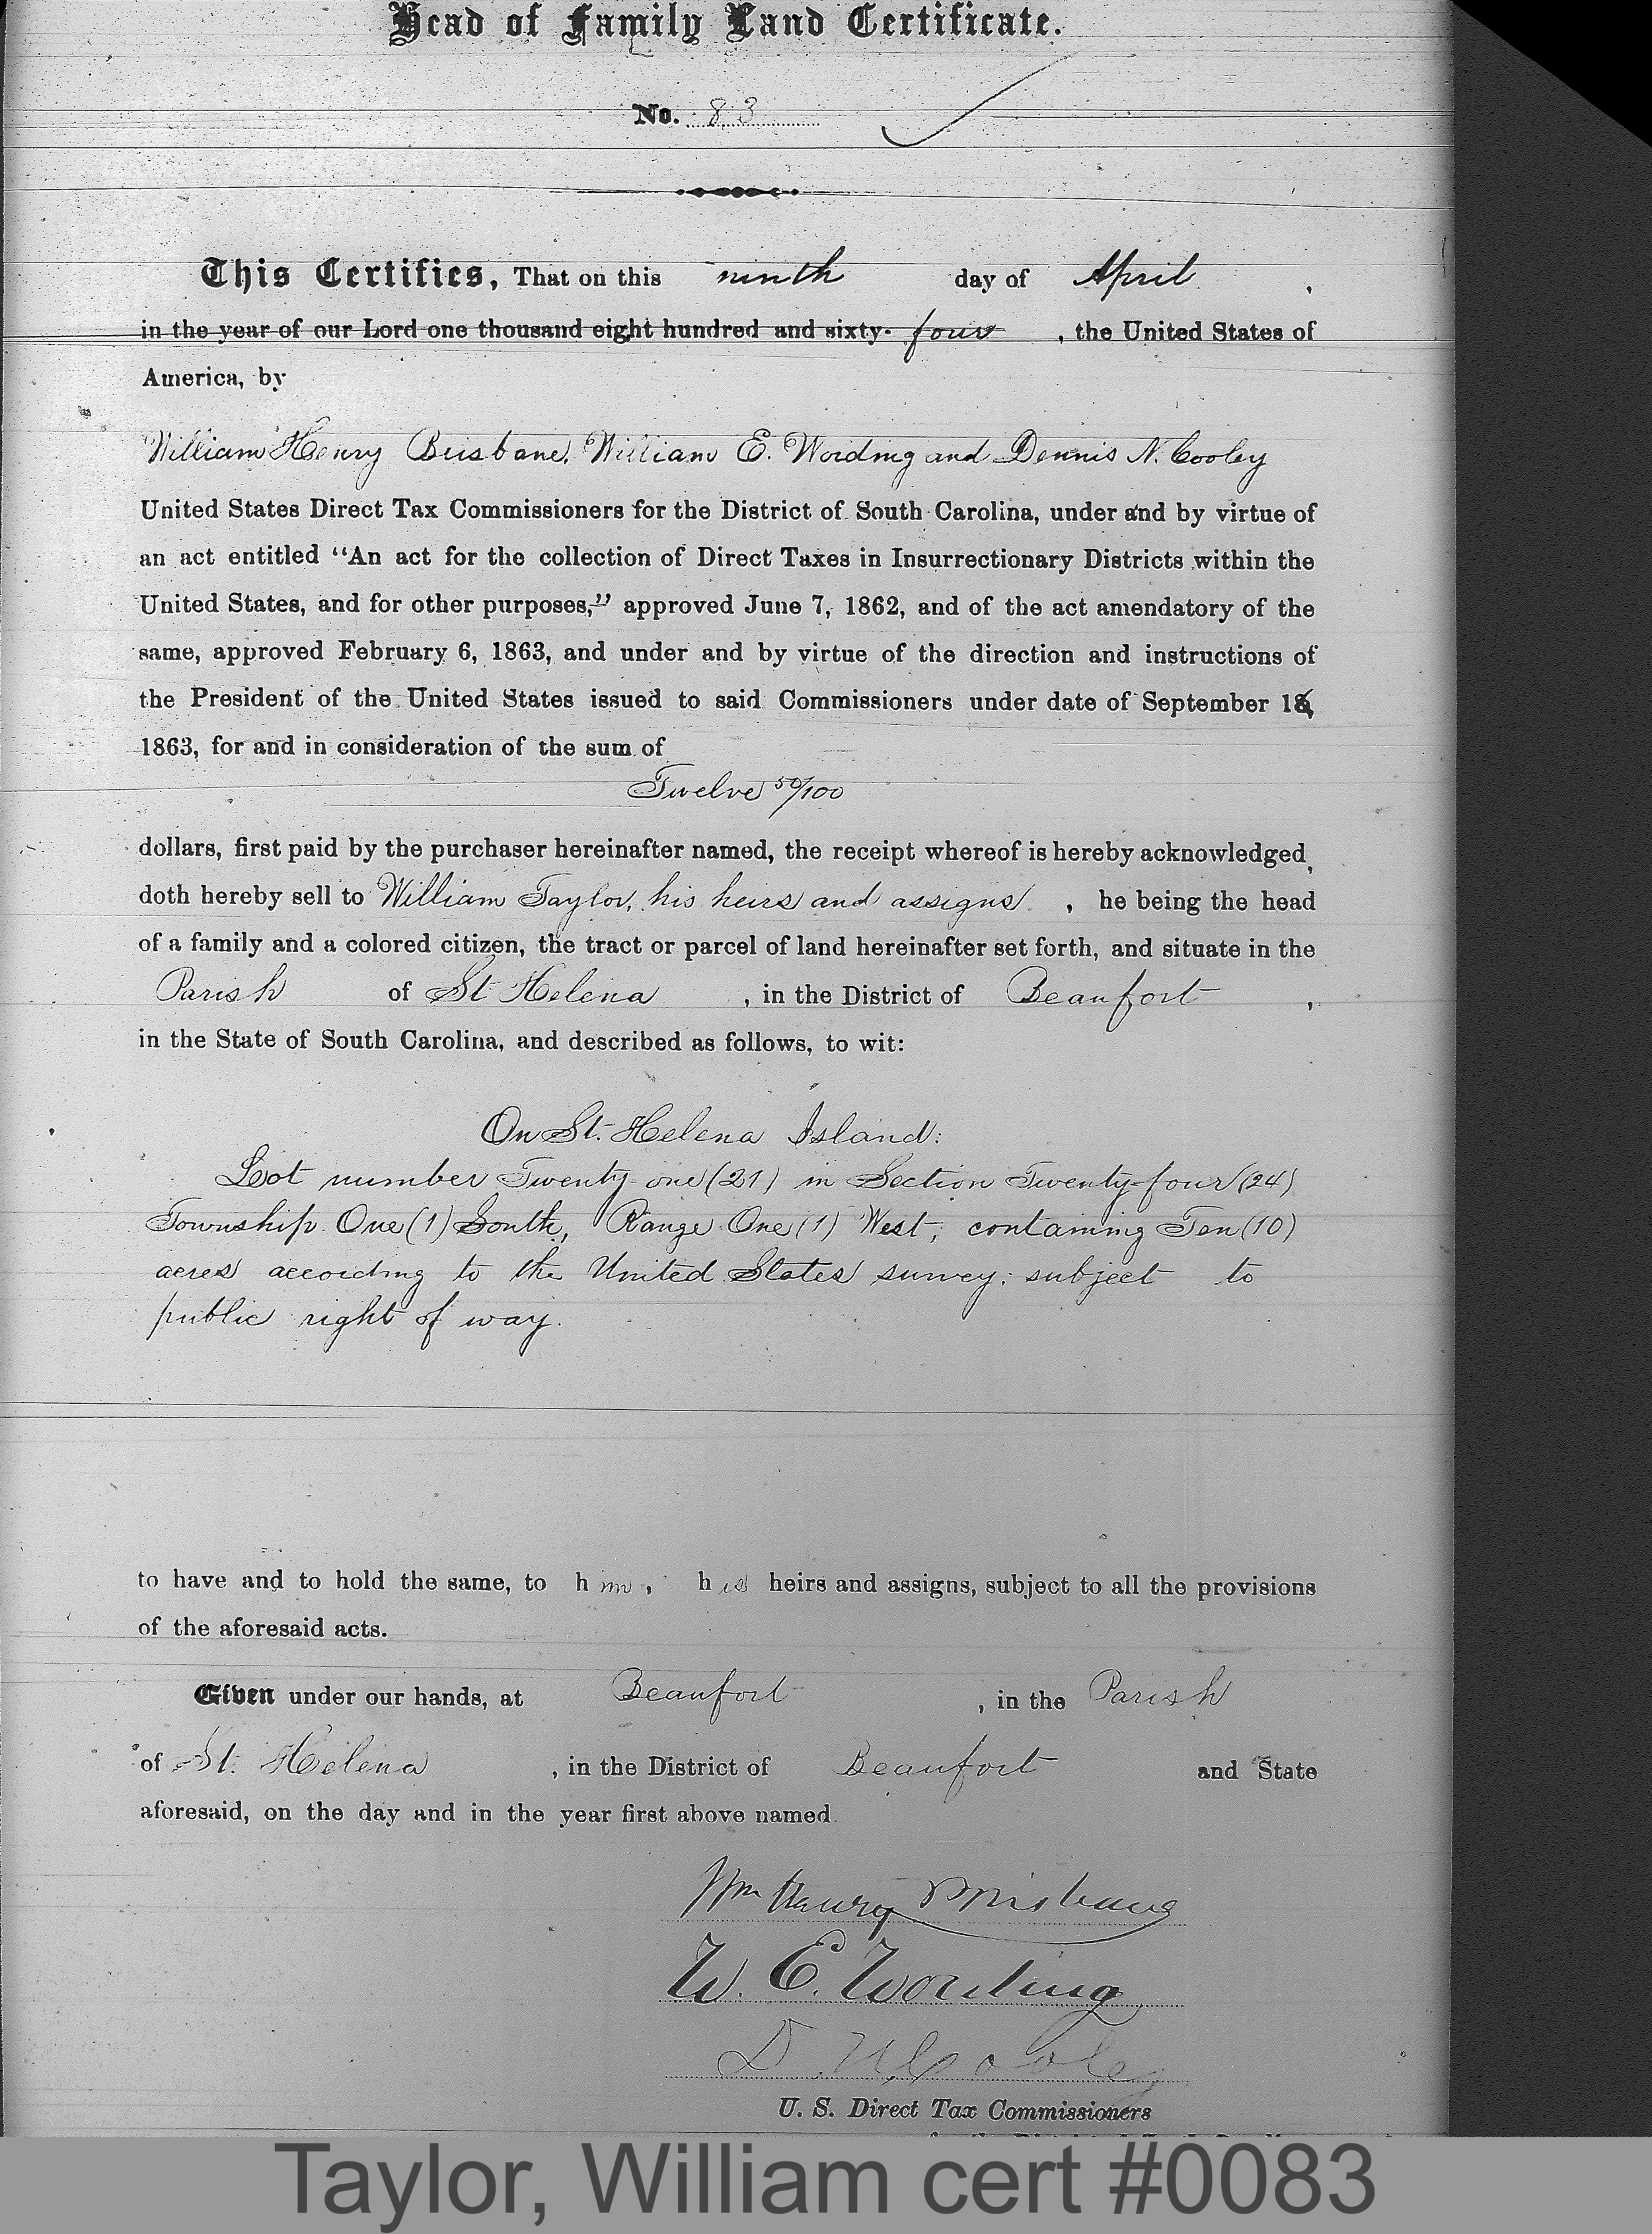 Head of Family Land Certificate.
No. 83
This Certifies, That on this ninth day of April,
in the year of our Lord one thousand eight hundred and sixty-four, the United States of
America, by
William Henry Brisbane, William E. Wording and Dennis N. Cooley
United States Direct Tax Commissioners for the District of South Carolina, under and by virtue of
an act entitled “An act for the collection of Direct Taxes in Insurrectionary Districts within the
United States, and for other purposes,” approved June 7, 1862, and of the act amendatory of the
same, approved February 6, 1863, and under and by virtue of the direction and instructions of
the President of the United States issued to said Commissioners under date of September
1863, for and in consideration of the sum of
Twelve 50/100
dollars, first paid by the purchaser hereinafter named, the receipt whereof is hereby acknowledged,
doth hereby sell to William Taylor, his heirs and assigns, he being the head
of a family and a colored citizen, the tract or parcel of land hereinafter set forth, and situate in the
Parish of St Helena, in the District of Beaufort,
in the State of South Carolina, and described as follows, to wit:
On St. Helena Island:
Lot number Twenty-one (21) in Section Twenty-four (24)
Township One (1) South, Range One (1) West, containing Ten (10)
acres according to the United States survey; subject to
public right of way.
to have and to hold the same, to him, his heirs and assigns, subject to all the provisions
of the aforesaid acts.
Given under our hands, at Beaufort, in the Parish
of St. Helena, in the District of Beaufort and State
aforesaid, on the day and in the year first above named.
Wm Henry Brisbane
W. E. Wording
D. N. Cooley
U. S. Direct Tax Commissioners
Taylor, William cert #0083